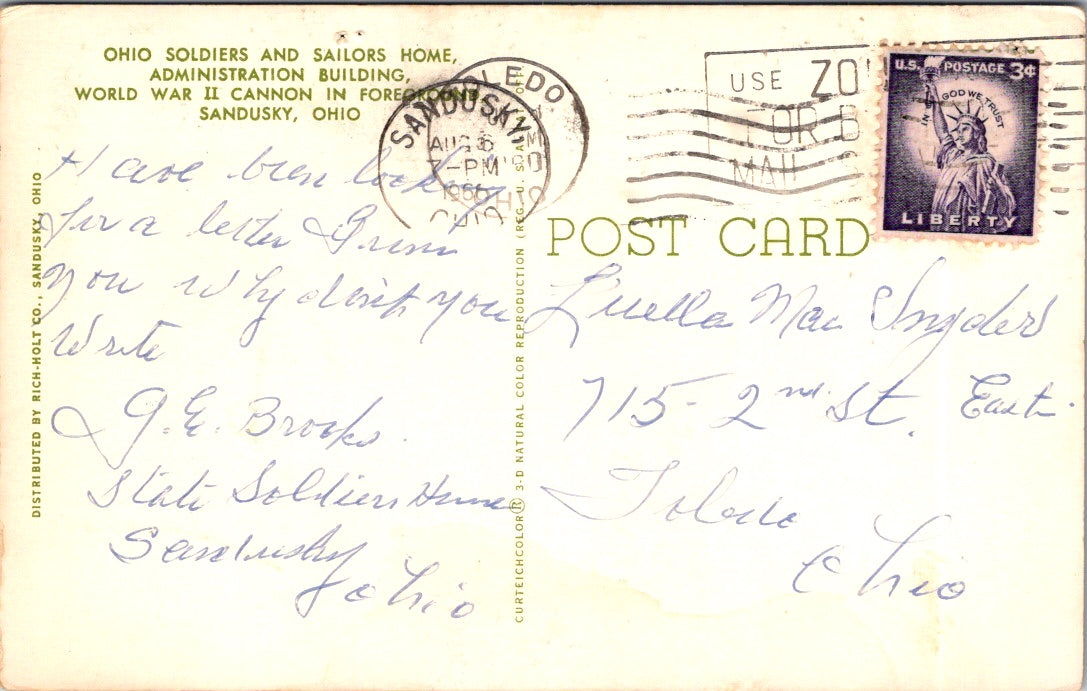 OHIO SOLDIERS AND SAILORS HOME,
ADMINISTRATION BUILDING,
WORLD WAR II CANNON IN FOREGROUND
SANDUSKY, OHIO
Have been looking
for a letter From
you why don't you
Write
G.E. Brooks.
State Soldiers Home
Sandusky
Ohio
DISTRIBUTED BY RICH-HOLT CO., SANDUSKY, OHIO
CURTEICHCOLOR® 3-D NATURAL COLOR REPRODUCTION (REG. U.S.A.
SANDUSKY
AUG 6
7-PM
1960
OHIO
TOLEDO
OHIO
USE ZO
FOR
MAIL
U.S. POSTAGE 3¢
IN GOD WE TRUST
LIBERTY
POST CARD
Luella Mae Snyder
715-2nd. St. East.
Toledo
Ohio